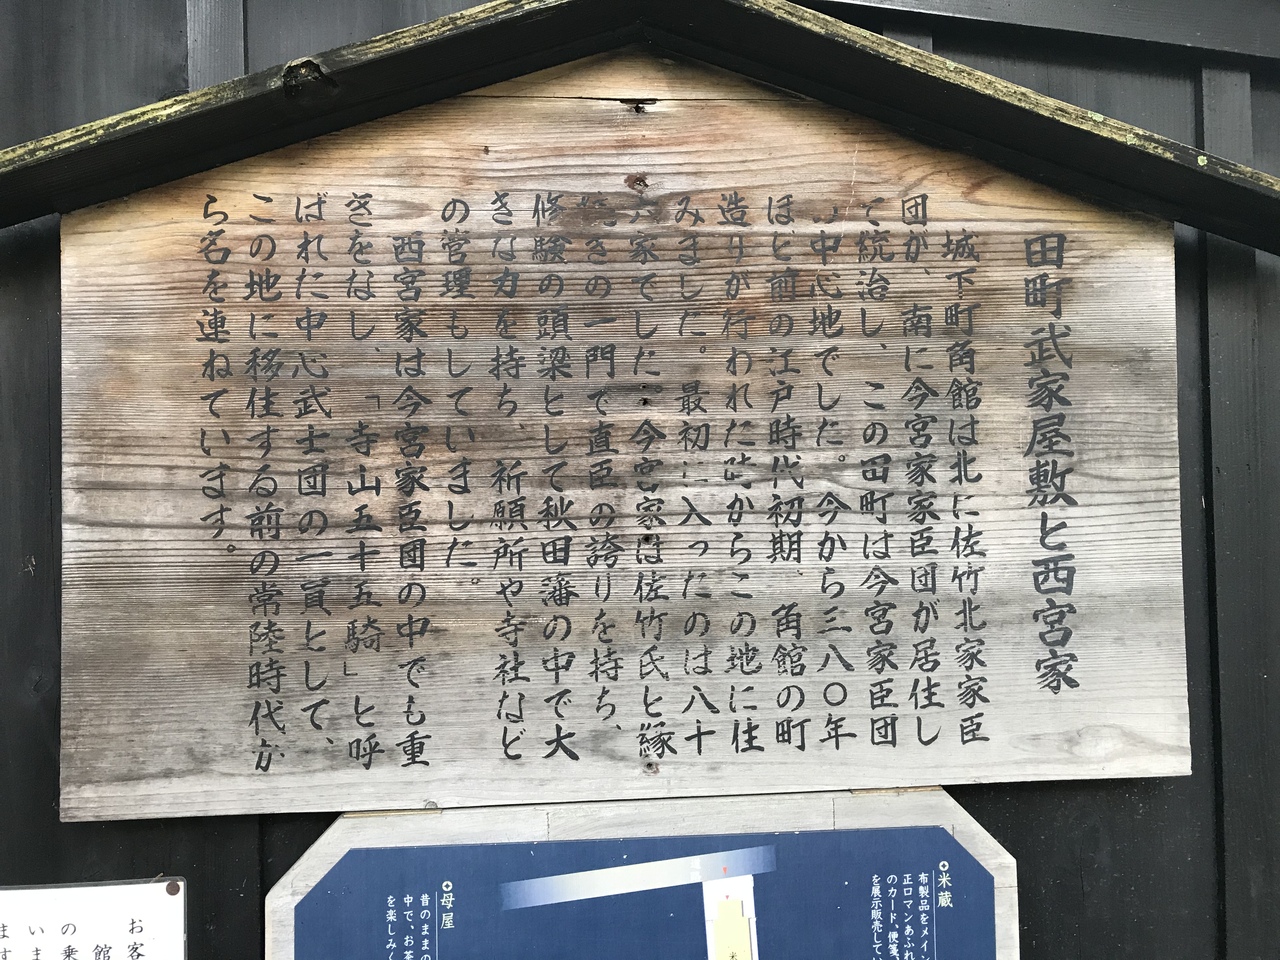 田町武家屋敷と西宮家
城下町角館は北に佐竹北家家臣
団が、南に今宮家家臣団が居住し
て統治し、この田町は今宮家臣団
の中心地でした。今から三八〇年
ほど前の江戸時代初期、角館の町
造りが行われた時からこの地に住
みました。最初に入ったのは八十
六家でした。今宮家は佐竹氏と縁
続きの一門で直臣の誇りを持ち、
修験の頭梁として秋田藩の中で大
きな力を持ち、祈願所や寺社など
の管理もしていました。
西宮家は今宮家臣団の中でも重
きをなし、「寺山五十五騎」と呼
ばれた中心武士団の一員として、
この地に移住する前の常陸時代か
ら名を連ねています。
米蔵
布製品をメイン
正ロマンあふれ
のカード、便箋、
を展示販売してい
米
母屋
昔のままの
中で、お茶
を楽しみく
お客
館
の乗
いま
ます